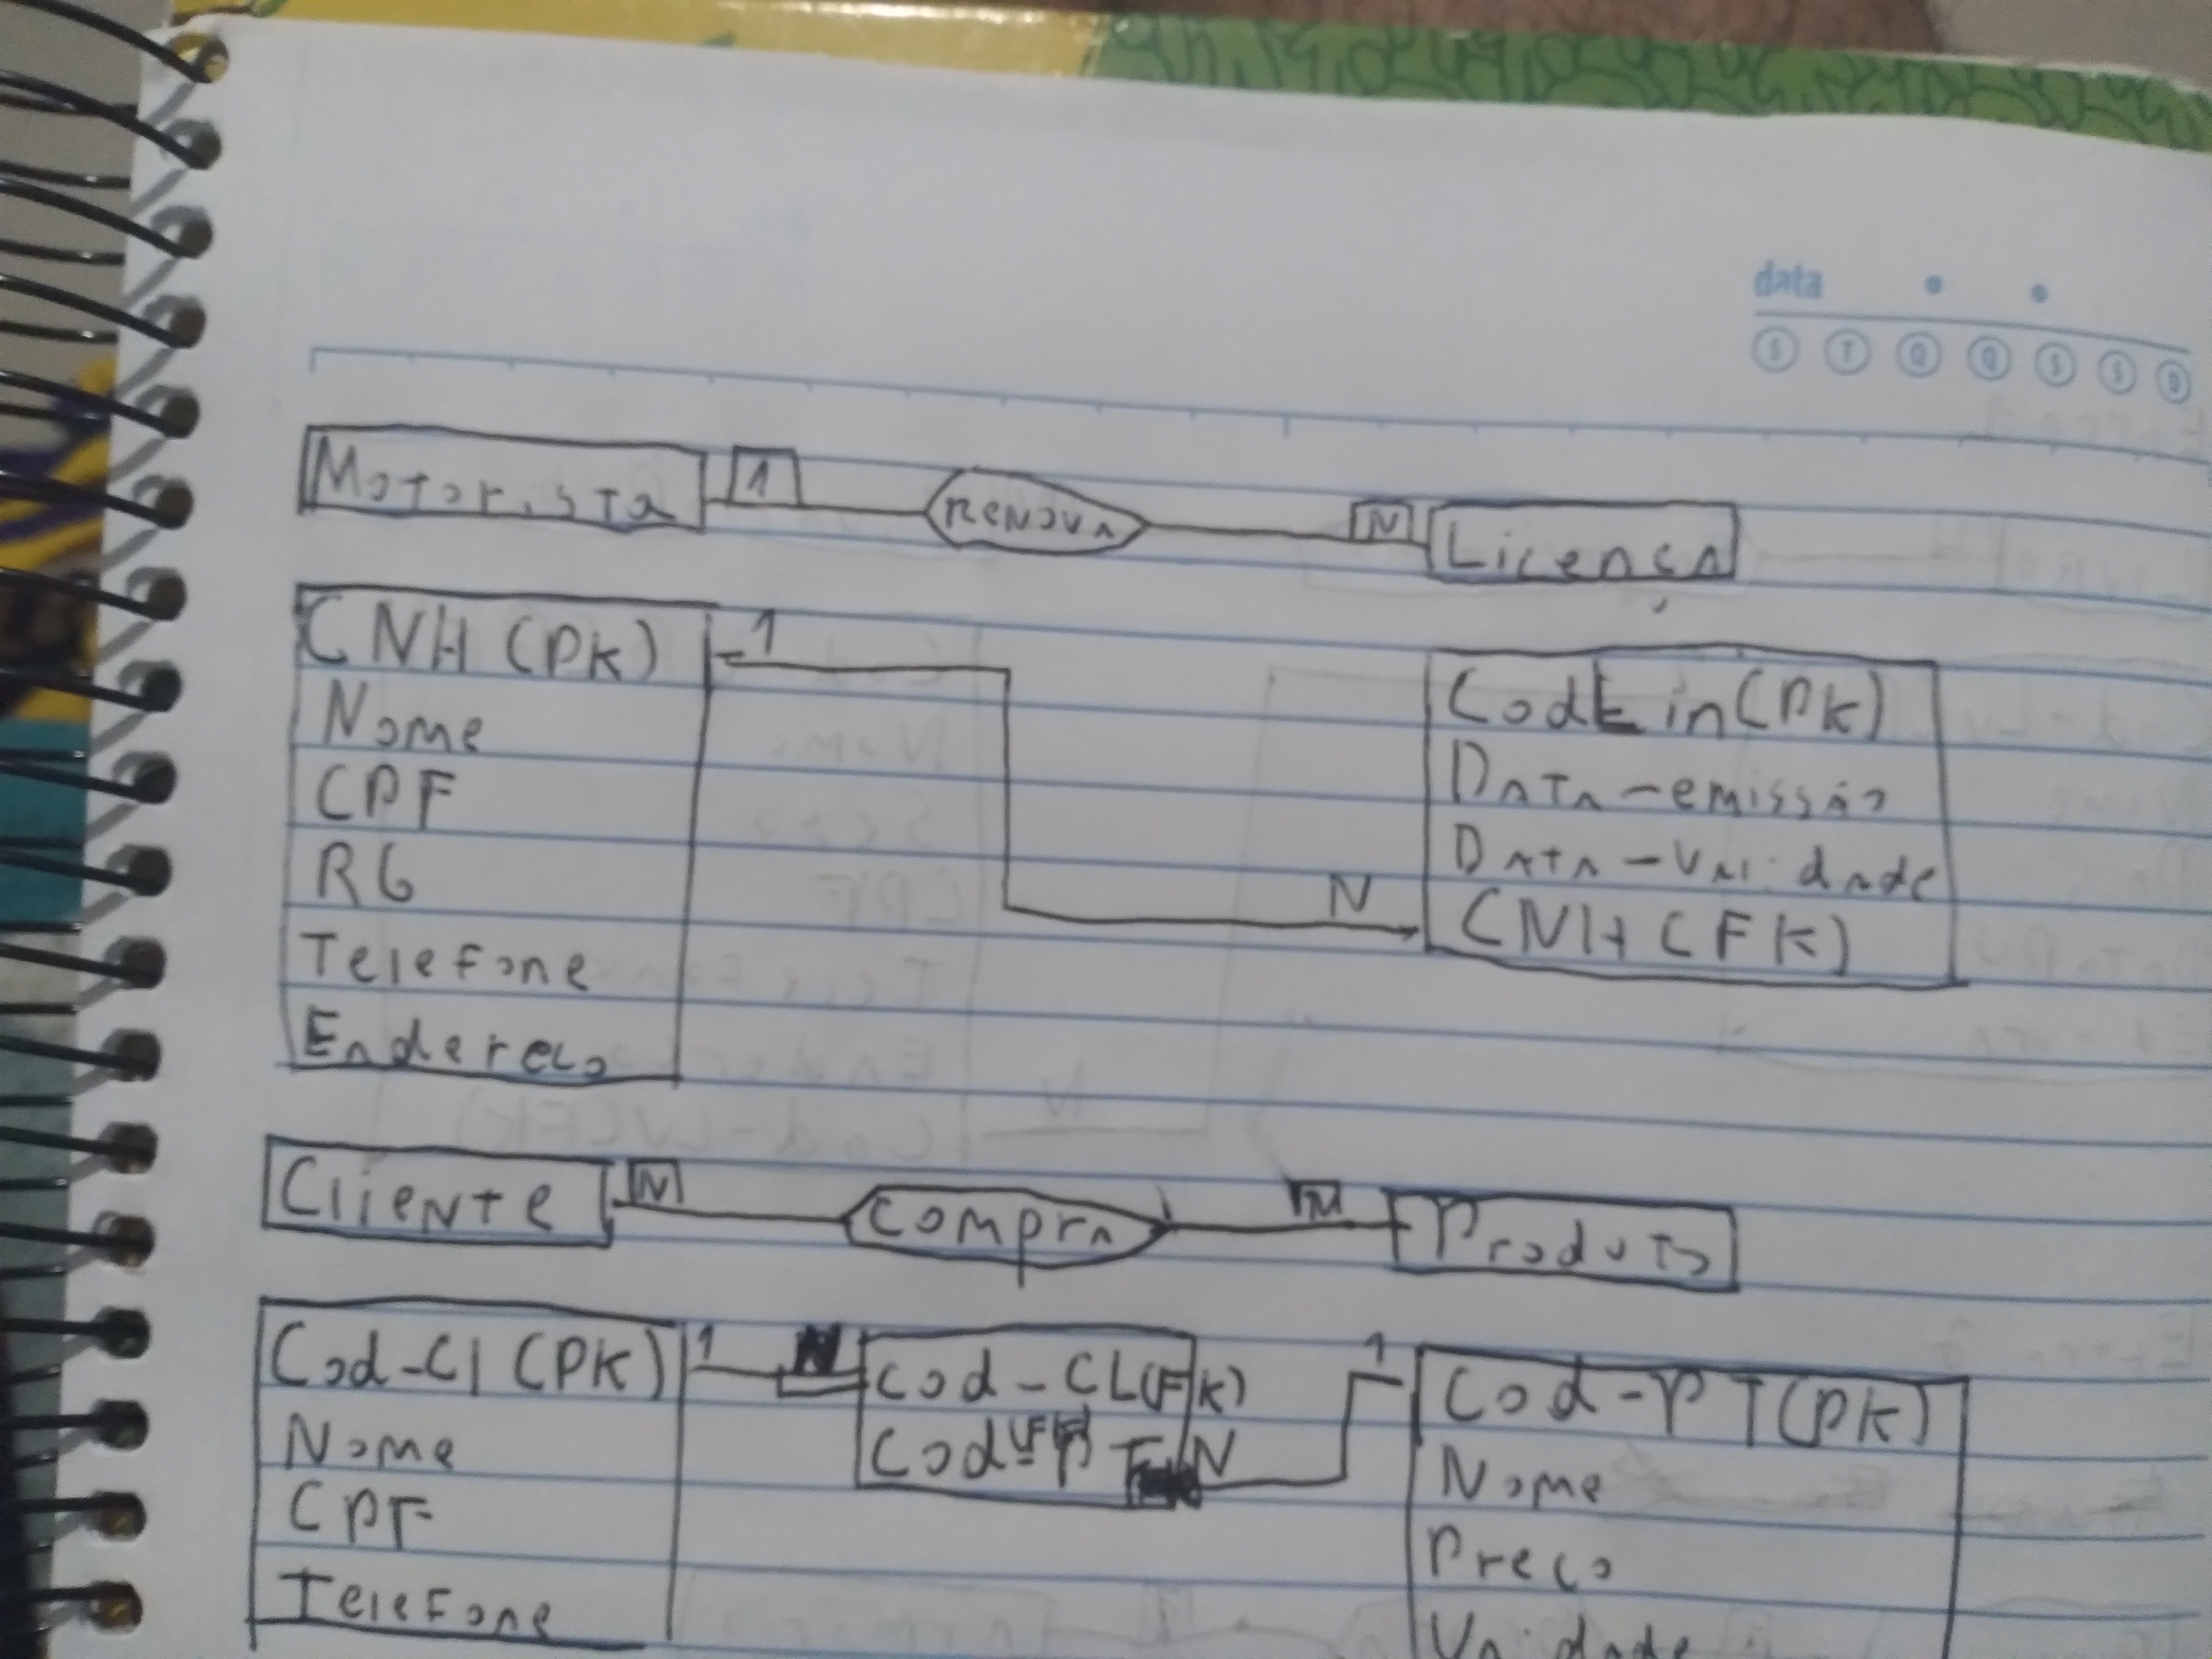 data
S T Q Q S S D
Motorista 1 Renova N Licença
CNH (PK) 1
Nome
CPF
RG
Telefone
Endereço
CodLin (PK)
Data-emissão
Data-validade
N CNH (FK)
Cliente N Compra N Produto
Cod-Cl (PK) 1 N
Nome
CPF
Telefone
Cod-CL(FK)
Cod-PT (FK) N
1 Cod-PT (PK)
Nome
Preço
Validade